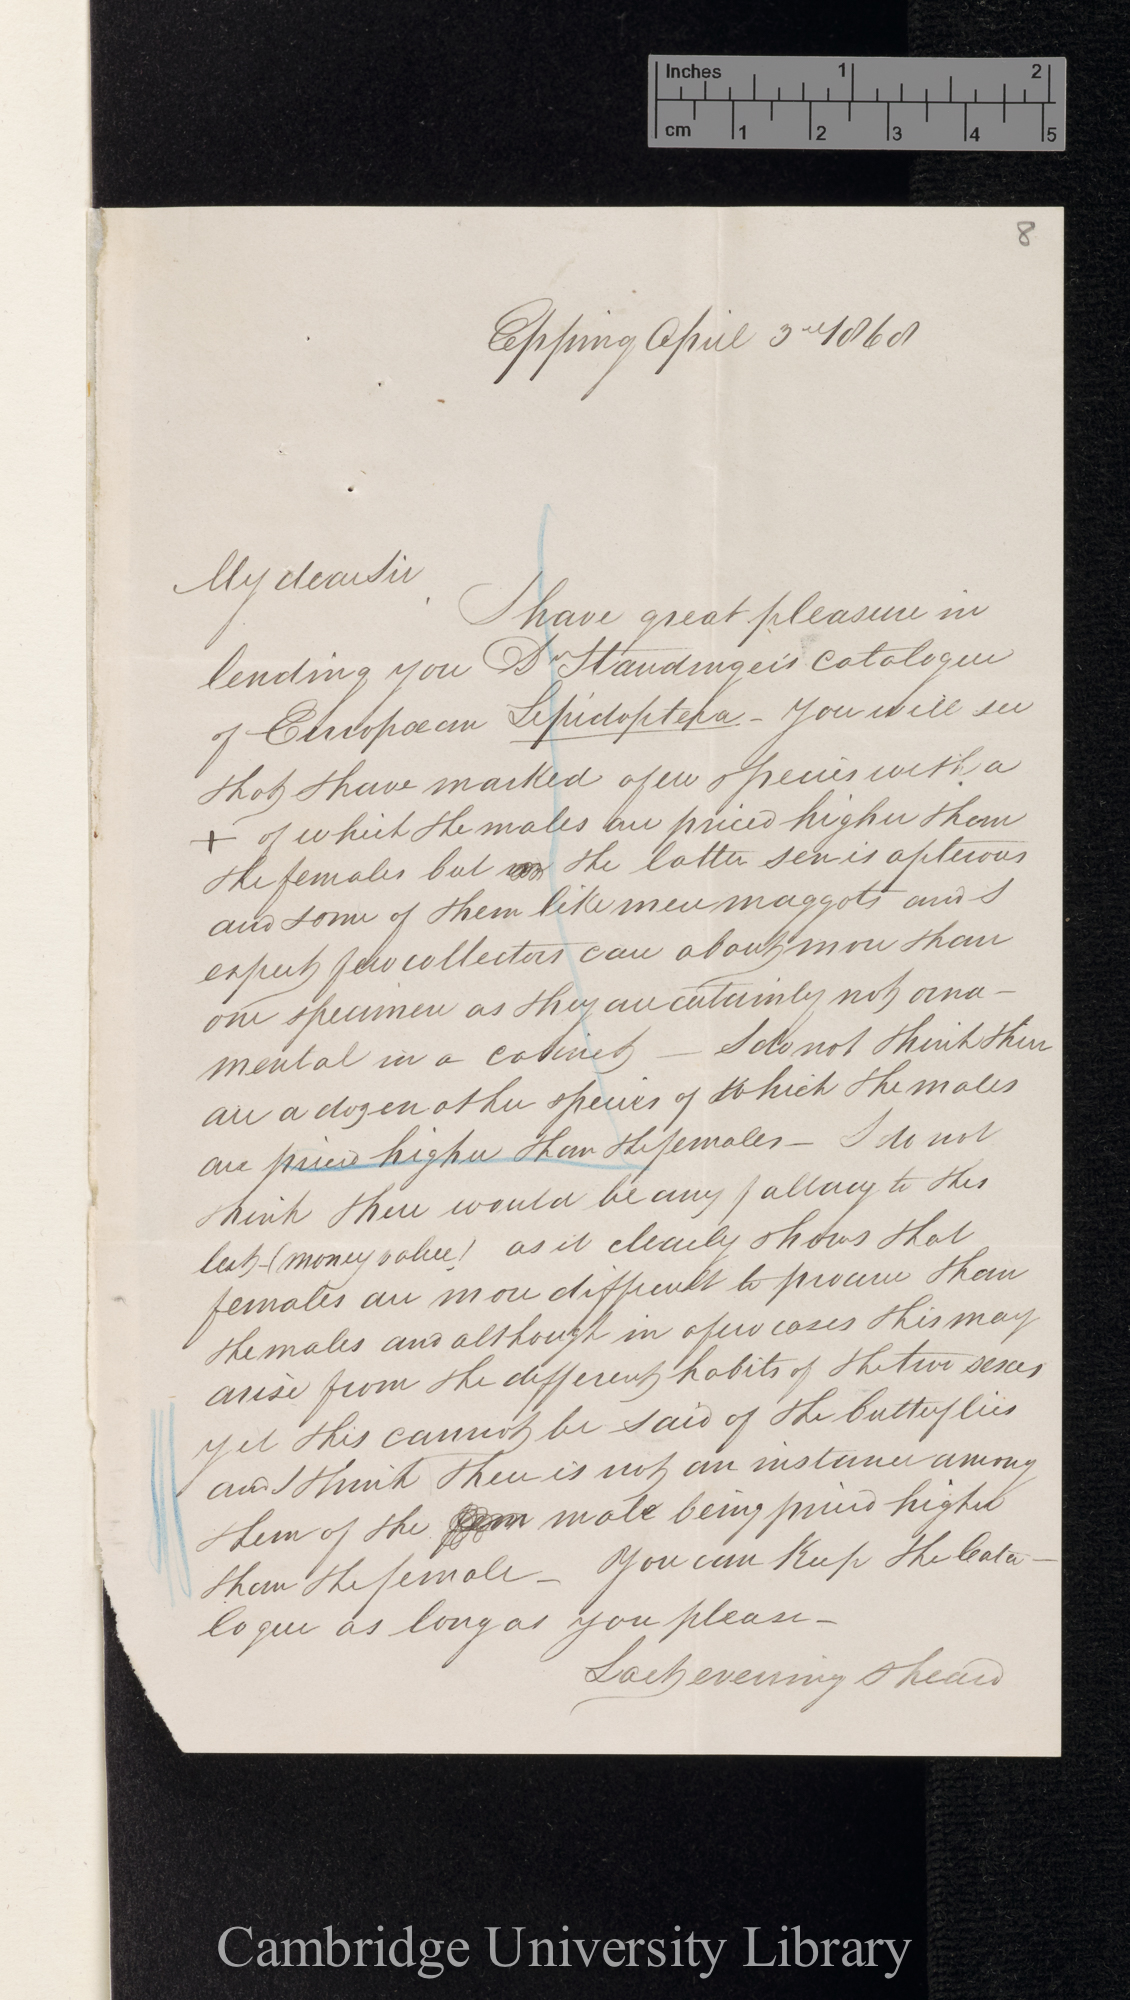 Inches 1 2
cm 1 2 3 4 5
8
Epping April 3rd 1868
My dear Sir
I have great pleasure in
lending you Dr Staudinger's catalogue
of European Lepidoptera – You will see
that I have marked a few species with a
+ of which the males are priced higher than
the females but the latter sex is apterous
and some of them like mere maggots and I
expect few collectors care about more than
one specimen as they are certainly not orna–
mental in a cabinet — I do not think there
are a dozen other species of which the males
are priced higher than the females – I do not
think there would be any fallacy to this
test – (money value) as it clearly shows that
females are more difficult to procure than
the males and although in a few cases this may
arise from the different habits of the two sexes
yet this cannot be said of the butterflies
and I think there is not an instance among
them of the male being priced higher
than the female – You can keep the Cata–
logue as long as you please –
Last evening I heard
Cambridge University Library